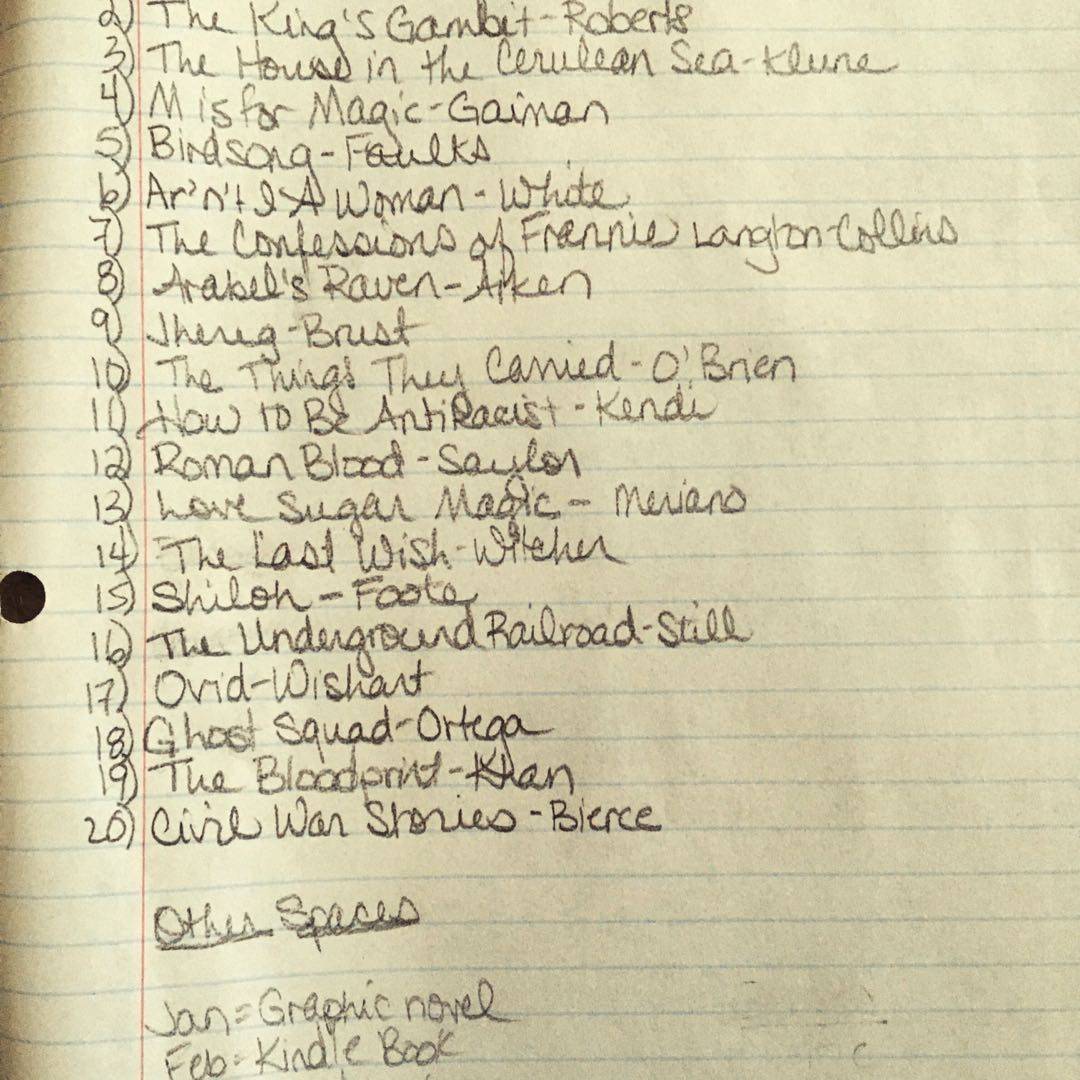 2) The King's Gambit-Roberts
3) The House in the Cerulean Sea-Klune
4) M is for Magic-Gaiman
5) Birdsong-Faulks
6) Ar'n't I A Woman-White
7) The Confessions of Frannie Langton-Collins
8) Arabel's Raven-Aiken
9) Jhereg-Brust
10) The Things They Carried-O'Brien
11) How to Be AntiRacist-Kendi
12) Roman Blood-Saylor
13) Love Sugar Magic-Meriano
14) The Last Wish-Witcher
15) Shiloh-Foote
16) The Underground Railroad-Still
17) Ovid-Wishart
18) Ghost Squad-Ortega
19) The Bloodprint-Khan
20) Civil War Stories-Bierce
Other Spaces
Jan=Graphic novel
Feb=Kindle Book